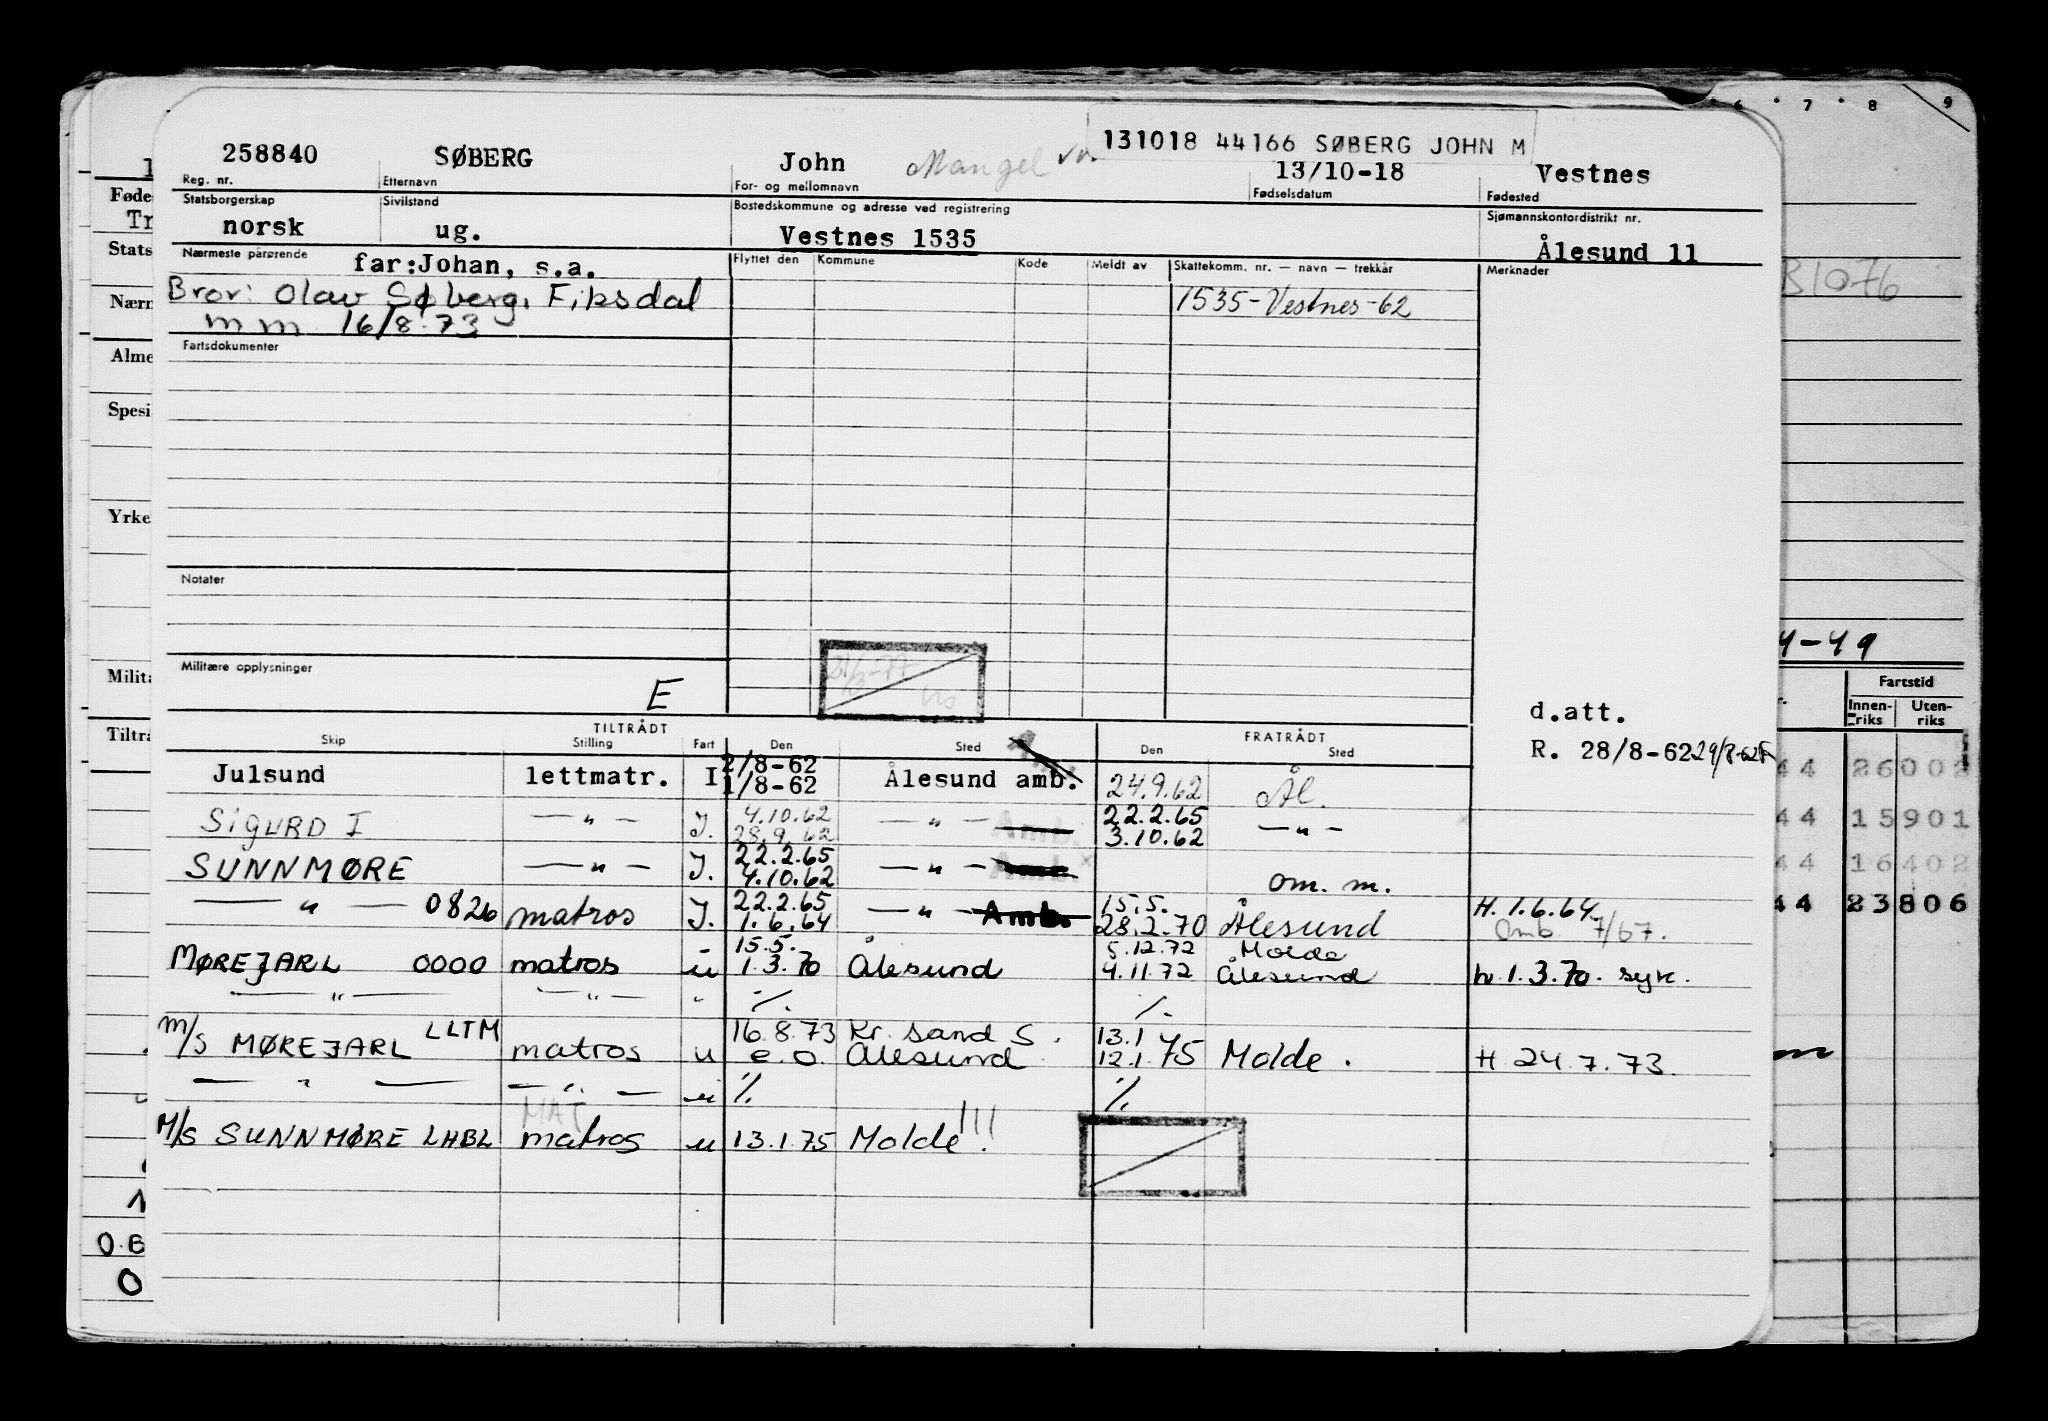 131018 44166 SØBERG JOHN M
6 7 8 9
258840 SØBERG John Mangel 13/10-18 Vestnes
Reg. nr. Etternavn For- og mellomnavn Fødselsdatum Fødested
Statsborgerskap Sivilstand Bostedskommune og adresse ved registrering Sjømannskontordistrikt nr.
norsk ug. Vestnes 1535 Ålesund 11
Nærmeste pårørende far:Johan, s.a. Flyttet den Kommune Kode Meldt av Skattekomm. nr. — navn — trekkår Merknader
Bror: Olav Søberg, Fiksdal 1535-Vestnes-62
mm 16/8-73
Fartsdokumenter
Notater
Militære opplysninger
E
d.att.
R. 28/8-62 29/8-62
TILTRÅDT FRATRÅDT
Skip Stilling Fart Den Sted Den Sted
Julsund lettmatr. I 2/8-62 1/8-62 Ålesund amb. 24.9.62 Ål.
SIGURD I —"— I. 4.10.62 28.9.62 —"— Amb. 22.2.65 3.10.62 —"—
SUNNMØRE —"— I. 22.2.65 4.10.62 —"— Amb. om. m.
—"— 0826 matros I. 22.2.65 1.6.64 —"— Amb. 15.5. 28.2.70 Ålesund H. 1.6.64 Omb 7/67.
MØREJARL 0000 matros u 15.5. 1.3.70 Ålesund 5.12.72 4.11.72 Molde Ålesund h 1.3.70. syk.
—"— —"— " %. %.
M/S MØREJARL LLTM matros u 16.8.73 e.o. Kr. sand S. Ålesund 13.1 12.1.75 Molde. H 24.7.73.
—"— —"— u % %
MAT
M/S SUNNMØRE LHBL matros u 13.1.75 Molde!!!
Føde
Tr
Stats
Nærm
Alme
Spesi
Yrke
Milita
Tiltrå
0
B1076
4-49
Fartstid
Innenriks Utenriks
44 26002
44 15901
44 16402
44 23806